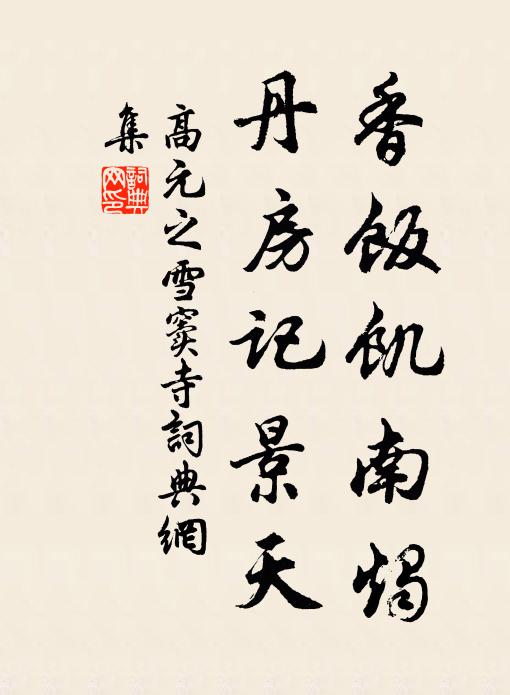 香飯飢南燭
丹房記景天
高元之雪竇寺詞典網
集
詞典網印